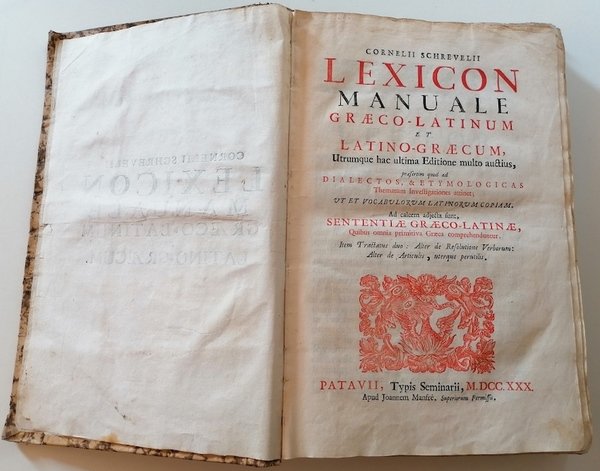 CORNELII SCHREVELII
LEXICON
MANUALE
GRÆCO-LATINUM
ET
LATINO-GRÆCUM,
Utrumque hac ultima Editione multo auctius,
præsertim quod ad
DIALECTOS, & ETYMOLOGICAS
Thematum Investigationes attinet;
UT ET VOCABULORUM LATINORUM COPIAM.
Ad calcem adjecta sunt,
SENTENTIÆ GRÆCO-LATINÆ,
Quibus omnia primitiva Græca comprehenduntur.
Item Tractatus duo: Alter de Resolutione Verborum:
Alter de Articulis, uterque perutilis.
PATAVII, Typis Seminarii, M.DCC.XXX.
Apud Joannem Manfrè, Superiorum Permissu.